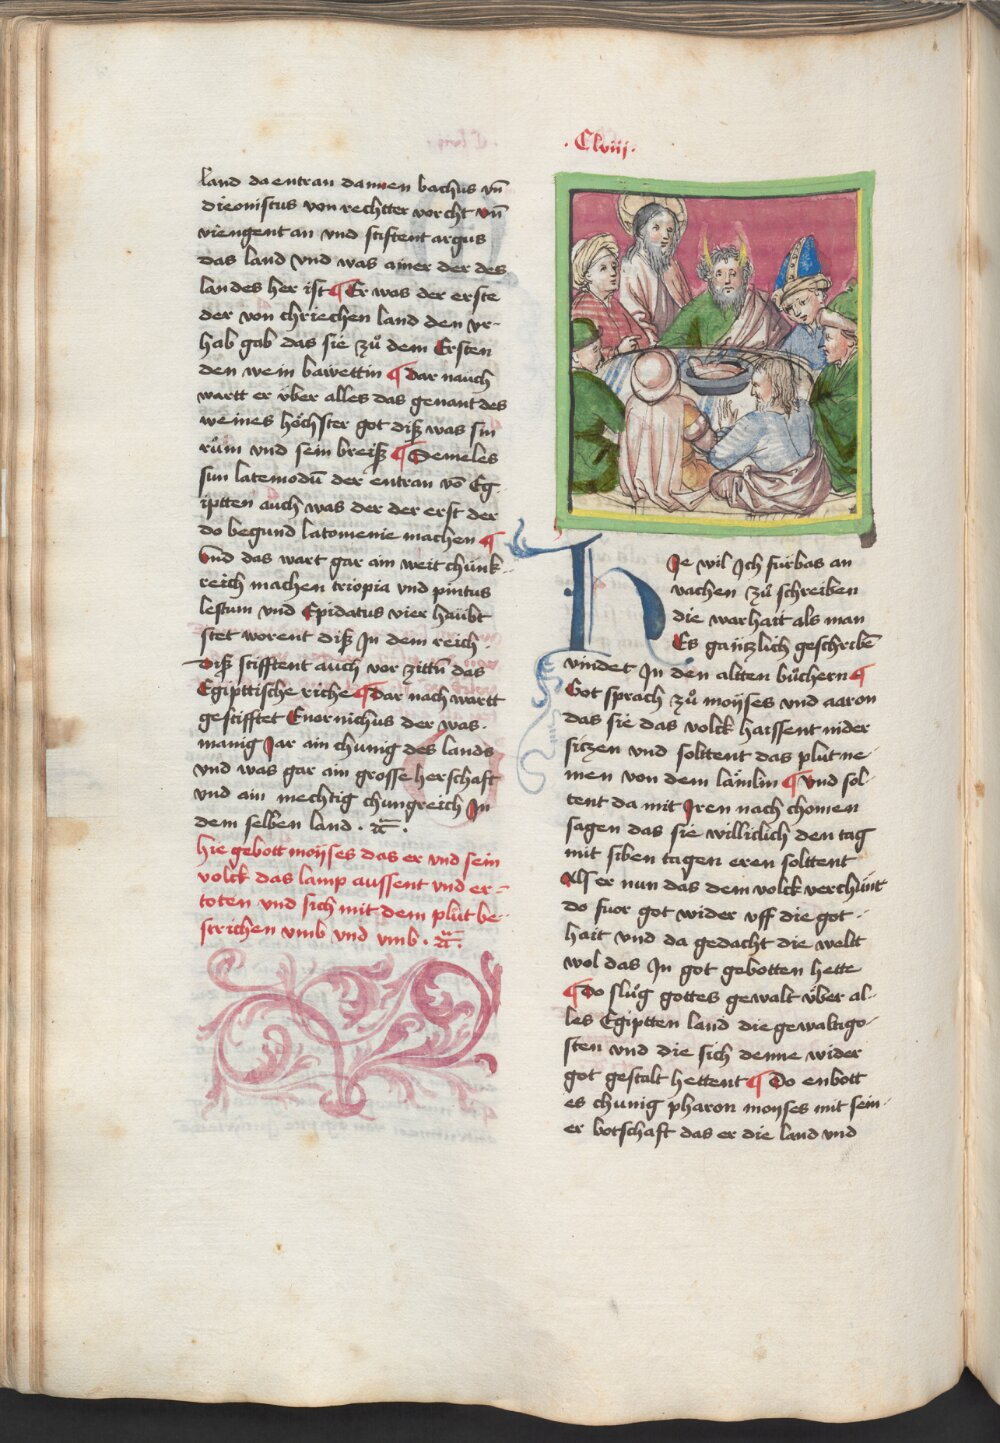 .Clviij.
land da entran dannen bachus vn̄
dieoniscus von rechtter vorcht vn̄
viengent an vnd stiftent argus
das land vnd was ainer der des
landes her ist ¶ Er was der erste
der von chriechen land den vr-
hab gab das sie zů dem Ersten
den wein bawettin ¶ dar nauch
wartt er v̈ber alles das genant des
weines höchster got diß was sin
rům vnd sein breiß ¶ Semeles
sun latemodū der entran vō Eg-
iptten auch was der der erst der
do begund latomenie machen ¶
Vnd das wart gar ain weit chünk-
reich machen triopia vnd pintus
lestum vnd Epidatus vier haübt
stet worent diß Jn dem reich.
Diß stifftent auch vor zittn̄ das
Egipttische riche ¶ dar nach wartt
gestifftet Enornichus der was.
manig Jar ain chunig des lands
vnd was gar ain grosse herschaft
vnd ain mechtig chungreich Jn
dem selben land.
hie gebott moÿses das er vnd sein
volck das lamp aussent vnd er-
toten vnd sich mit dem plůt be-
strichen vmb vnd vmb.
HJe wil Jch fürbas an
vachen zů schreiben
die warhait als man
Es gäntzlich geschribē
vindet Jn den altten bůchern ¶
Got sprach zů moÿses vnd aaron
das sie das volck haissent nider
sitzen vnd solttent das plut ne-
men von dem lämlin ¶ Vnd sol-
tent da mit Jren nach chomen
sagen das sie williclich den tag
mit siben tagen eren solttent
Als er nun das dem volck verchünt
do fuor got wider vff die got-
hait vnd da gedacht die weltt
wol das Jn got gebotten hette
¶ Do slůg gottes gewalt v̈ber al-
les Egiptten land die gewaltigo-
sten vnd die sich denne wider
got gestalt hettent ¶ Do enbott
es chunig pharon moyses mit sein-
er botschaft das er die land vnd